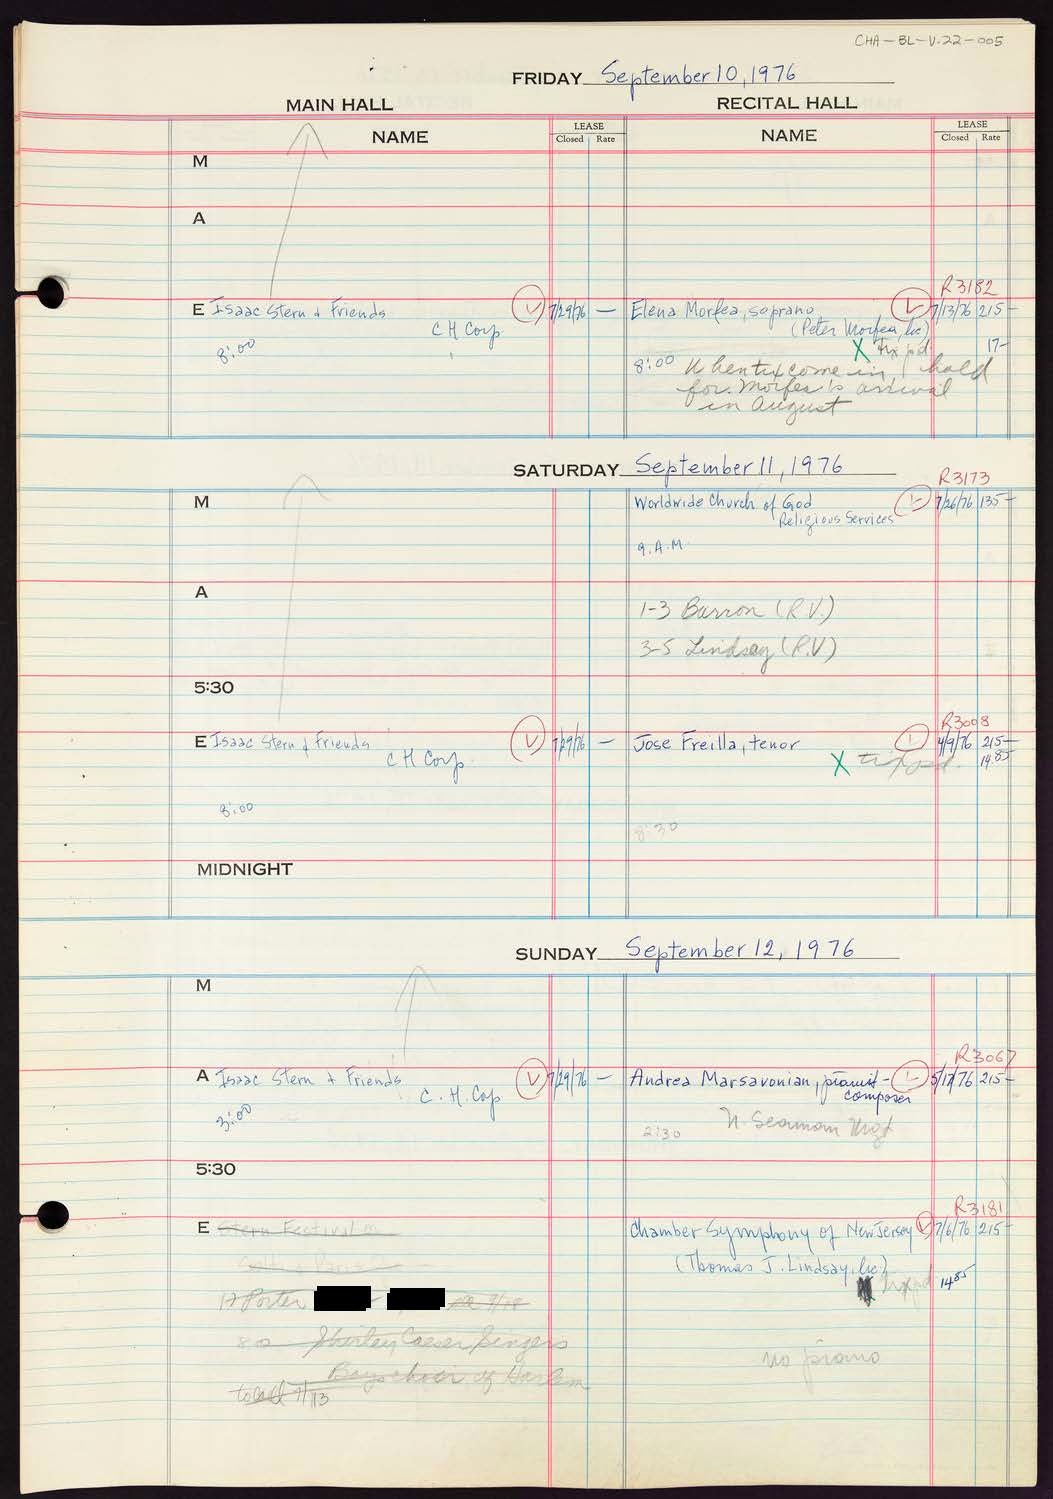 CHA-BL-V.22-005
FRIDAY September 10, 1976
MAIN HALL RECITAL HALL
NAME LEASE Closed Rate NAME LEASE Closed Rate
M
A
R3182
E Isaac Stern & Friends 7/29/76 — Elena Morfea, soprano 7/13/76 215-
C H Corp (Peter Morfea, lic)
8:00 X tix pd 17-
8:00 When tix come in, hold
for Morfea's arrival
in August
SATURDAY September 11, 1976
R3173
M Worldwide Church of God 7/26/76 135-
Religious Services
9. A.M.
A
1-3 Barron (R.V.)
3-5 Lindsay (R.V)
5:30
R3008
E Isaac Stern & Friends 7/29/76 — Jose Freilla, tenor 4/9/76 215-
C H Corp X tix pd. 14.85
8:00
8:30
MIDNIGHT
SUNDAY September 12, 1976
M
R3067
A Isaac Stern & Friends 7/29/76 — Andrea Marsavonian, pianist- 5/17/76 215-
C. H. Cop composer
3:00 2:30 N. Seaman Mgt
5:30
R3181
E Stern Festival Chamber Symphony of New Jersey 7/6/76 215-
(Thomas J. Lindsay, lic)
tix pd 14.85
Porter
8:00 Shirley Caeser Singers
Boys choir of Harlem
no piano
to call 7/13